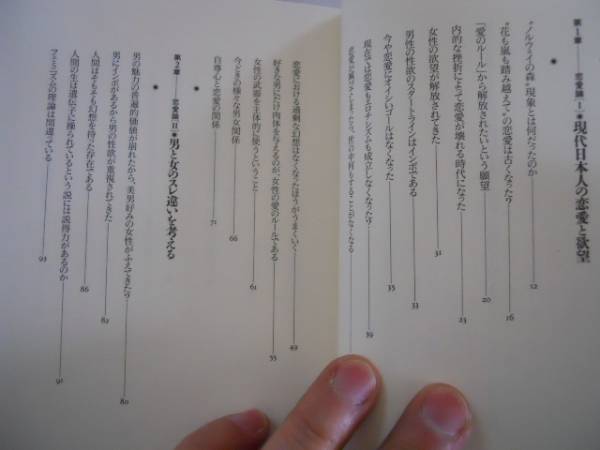 第1章——恋愛論[Ⅰ]●現代日本人の恋愛と欲望
“ノルウェイの森”現象とは何だったのか——12
“花も嵐も踏み越えて”の恋愛は古くなった?——16
「愛のルール」から解放されたいという願望——20
内的な挫折によって恋愛が壊れる時代になった——23
女性の欲望が解放されてきた——31
男性の性欲のスタートラインはインポである——33
今や恋愛にイイシいゴールはなくなった——35
現在では恋愛もエロチシズムも成立しなくなった?——39
恋愛における過剰な幻想はなくなったほうがうまくいく——49
好きな男にだけ肉体を与えるのが、女性の愛のルールである——55
女性の武器を主体的に使うということ——61
今どきの様々な男女関係——66
自尊心と恋愛の関係——71
第2章——恋愛論[Ⅱ]●男と女のスレ違いを考える
男の魅力の普遍的価値が崩れたから、美男好みの女性がふえてきた?——80
男にインポがあるから男の性欲が重視されてきた——82
人間はそもそも幻想を待った存在である——86
人間の生は遺伝子に操られているという説には説得力があるのか——91
フェミニズムの理論は間違っている——93